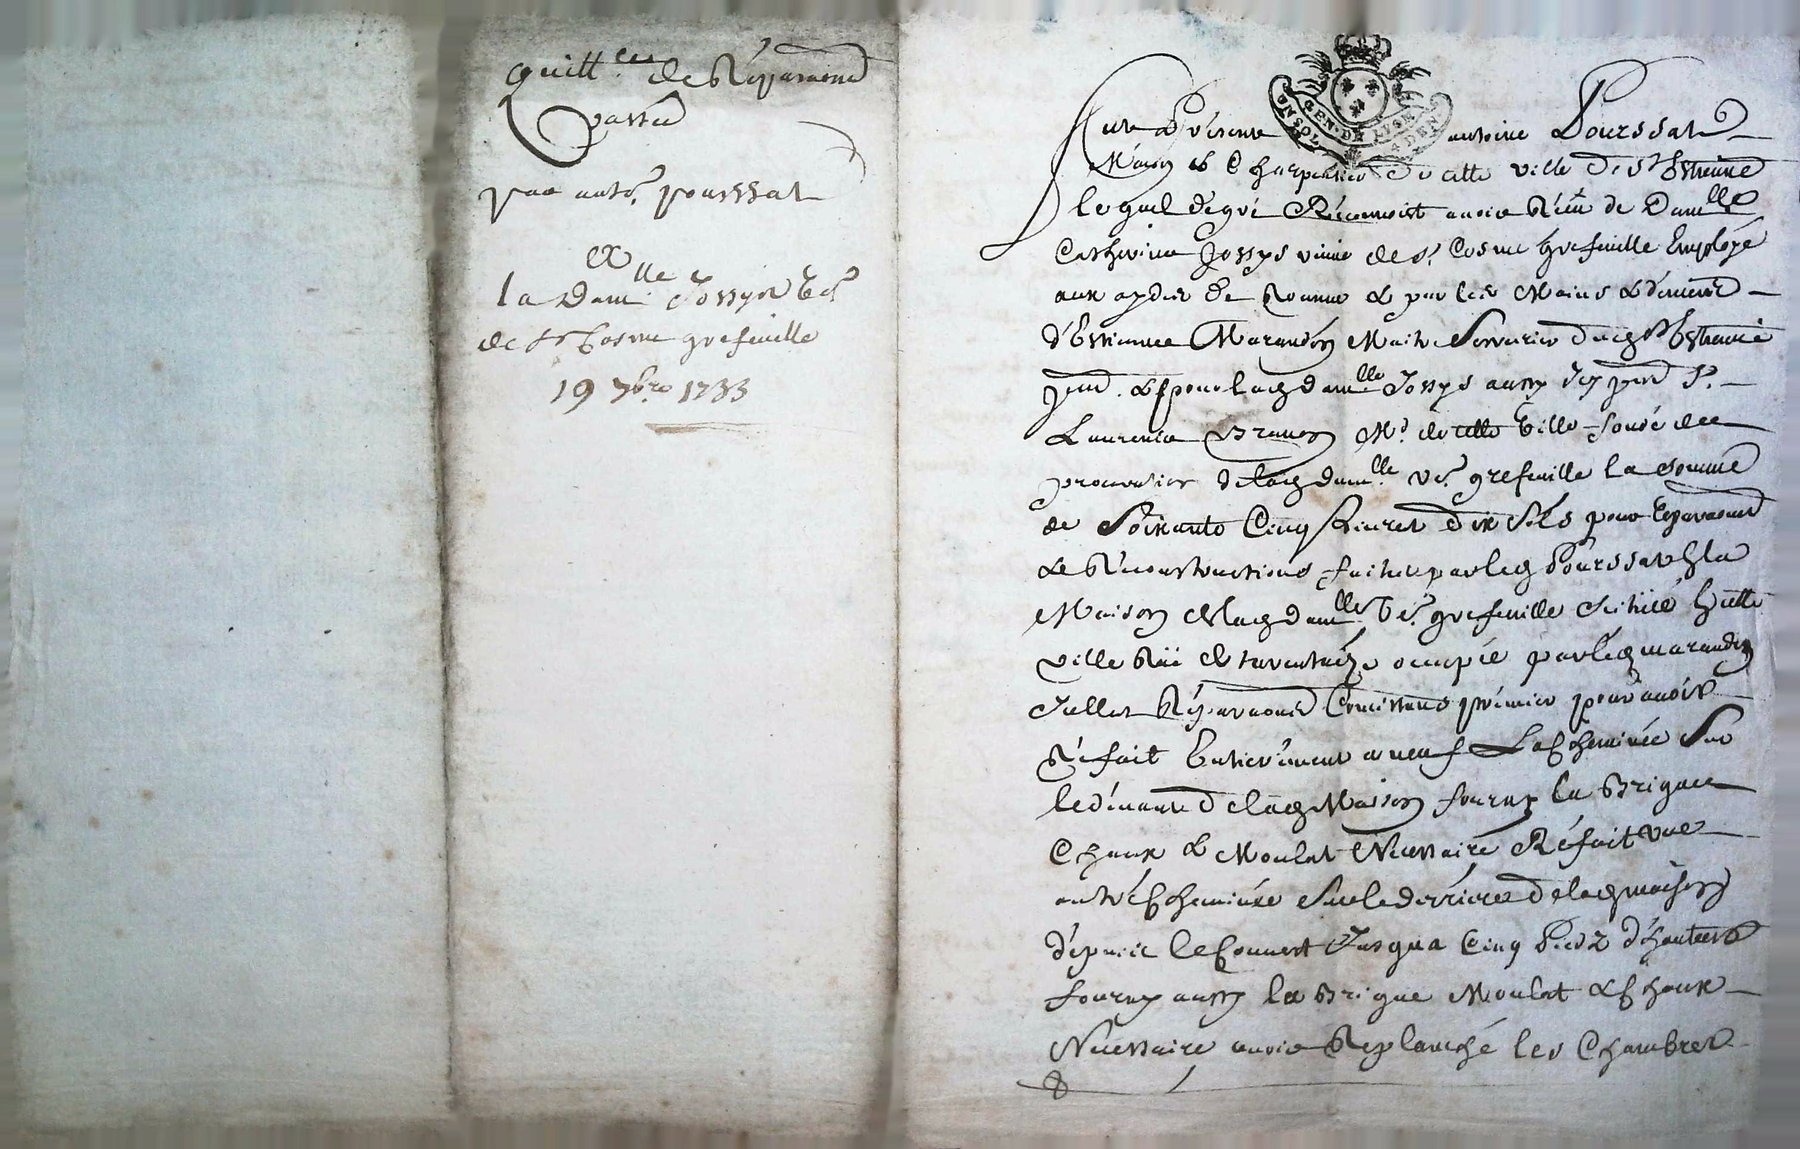 Quitt.ces de Réparaõns
passée
par anth.e poursSat
A
la dam.lle Jossys v.e
de Sr Cosme grefeuille
19 7bre 1733
GEN. DE LYSE
UN SOL
4 DEN
fut Présent antoine Pourssat
Maçon & Charpentier de cette ville de St Estienne
lequel de gré Reconnoist avoir Reçu de Dam.lle
Catherine Jossys veuve de Sr. Cosme grefeuille Employé
aux aydes de Roanne & par les Mains & deniers
d'Estienne Marandon Maitre Serrurier dud St Estienne
pnt & pour lad dam.lle Jossys aussy icy pnt Sr.
Laurence M.d de cette Ville fondé de
procuration de lad dam.lle ve. grefeuille la somme
de Soixante Cinq Livres dix sols pour reparaons
& Réconstructions faites par led Pourssat a la
Maison de lad dam.lle ve. grefeuille scituée en cette
ville Rüe de tarentaize occupée par led marandon
Icelles Réparaons Consistans prémier pour avoir
Réfait Entierement a neuf La Cheminée Sur
le dévant de lad Maison fourny la Brique
Chaux & Moulat Nécessaire Réfait une
autre Cheminée Sur le dérriere de lad maison
dépuis le Couvert Jusqua Cinq Piedz d'hauteur
fourny aussy la Brique Moulat & Chaux
Nécessaire avoir Replanché les Chambres